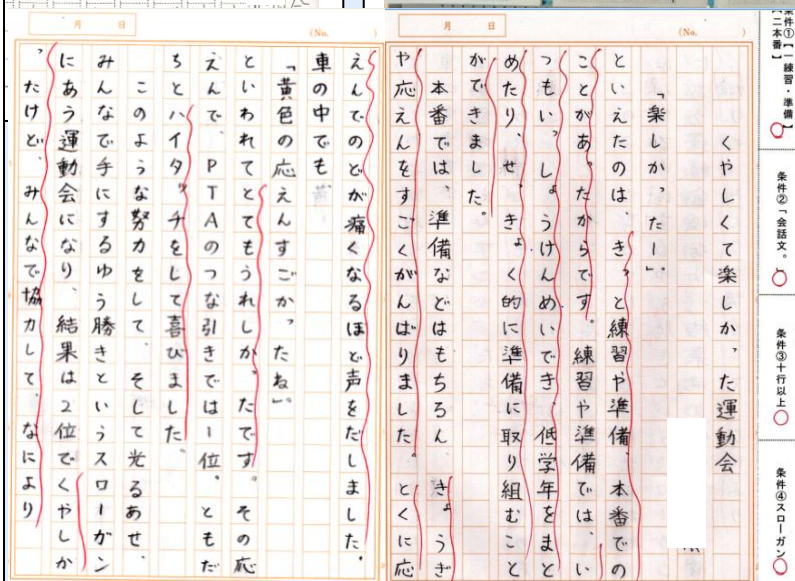 条件①【一練習・準備】
【二本番】
条件②「会話文。」
条件③十行以上
条件④スローガン
月 日
(No. )
くやしくて楽しかった運動会
「楽しかったー」。
といえたのは、きっと練習や準備、本番での
ことがあったからです。練習や準備では、い
つもいっしょうけんめいでき、低学年をまと
めたり、せっきょく的に準備に取り組むこと
ができました。
本番では、準備などはもちろん、きょうぎ
や応えんをすごくがんばりました。とくに応
月 日
(No. )
えんでのどが痛くなるほど声をだしました。
車の中でも、
「黄色の応えんすごかったね」。
といわれてとてもうれしかったです。その応
えんで、PTAのつな引きでは1位。ともだ
ちとハイタッチをして喜びました。
このような努力をして、そして光るあせ、
みんなで手にするゆう勝きというスローガン
にあう運動会になり、結果は2位でくやしか
ったけど、みんなで協力して、なにより